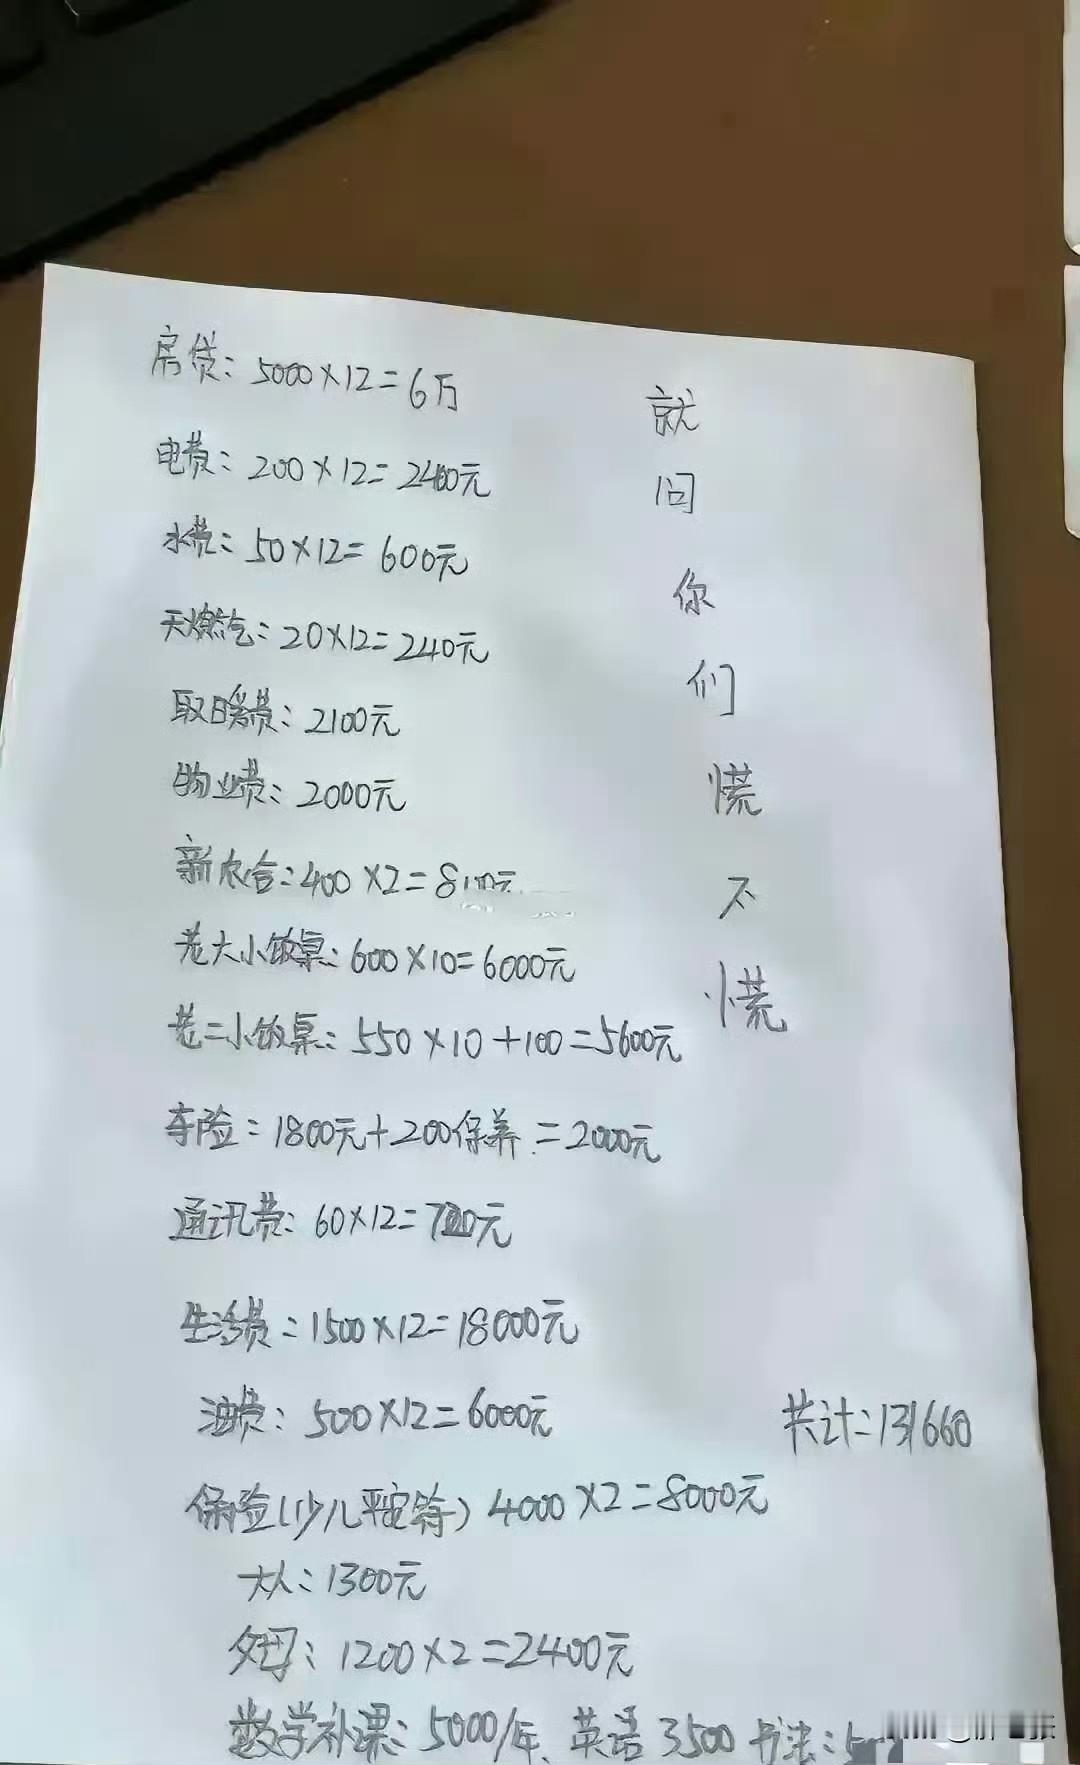 房贷：5000×12=6万
电费：200×12=2400元
水费：50×12=600元
天燃气：20×12=240元
取暖费：2100元
物业费：2000元
新农合：400×2=800元
老大小饭桌：600×10=6000元
老二小饭桌：550×10+100=5600元
车险：1800元+200保养=2000元
通讯费：60×12=720元
生活费：1500×12=18000元
油费：500×12=6000元
保险(少儿平安等) 4000×2=8000元
大人：1300元
父母：1200×2=2400元
数学补课：5000/年、英语3500 书法：5
就问你们慌不慌
共计：131660